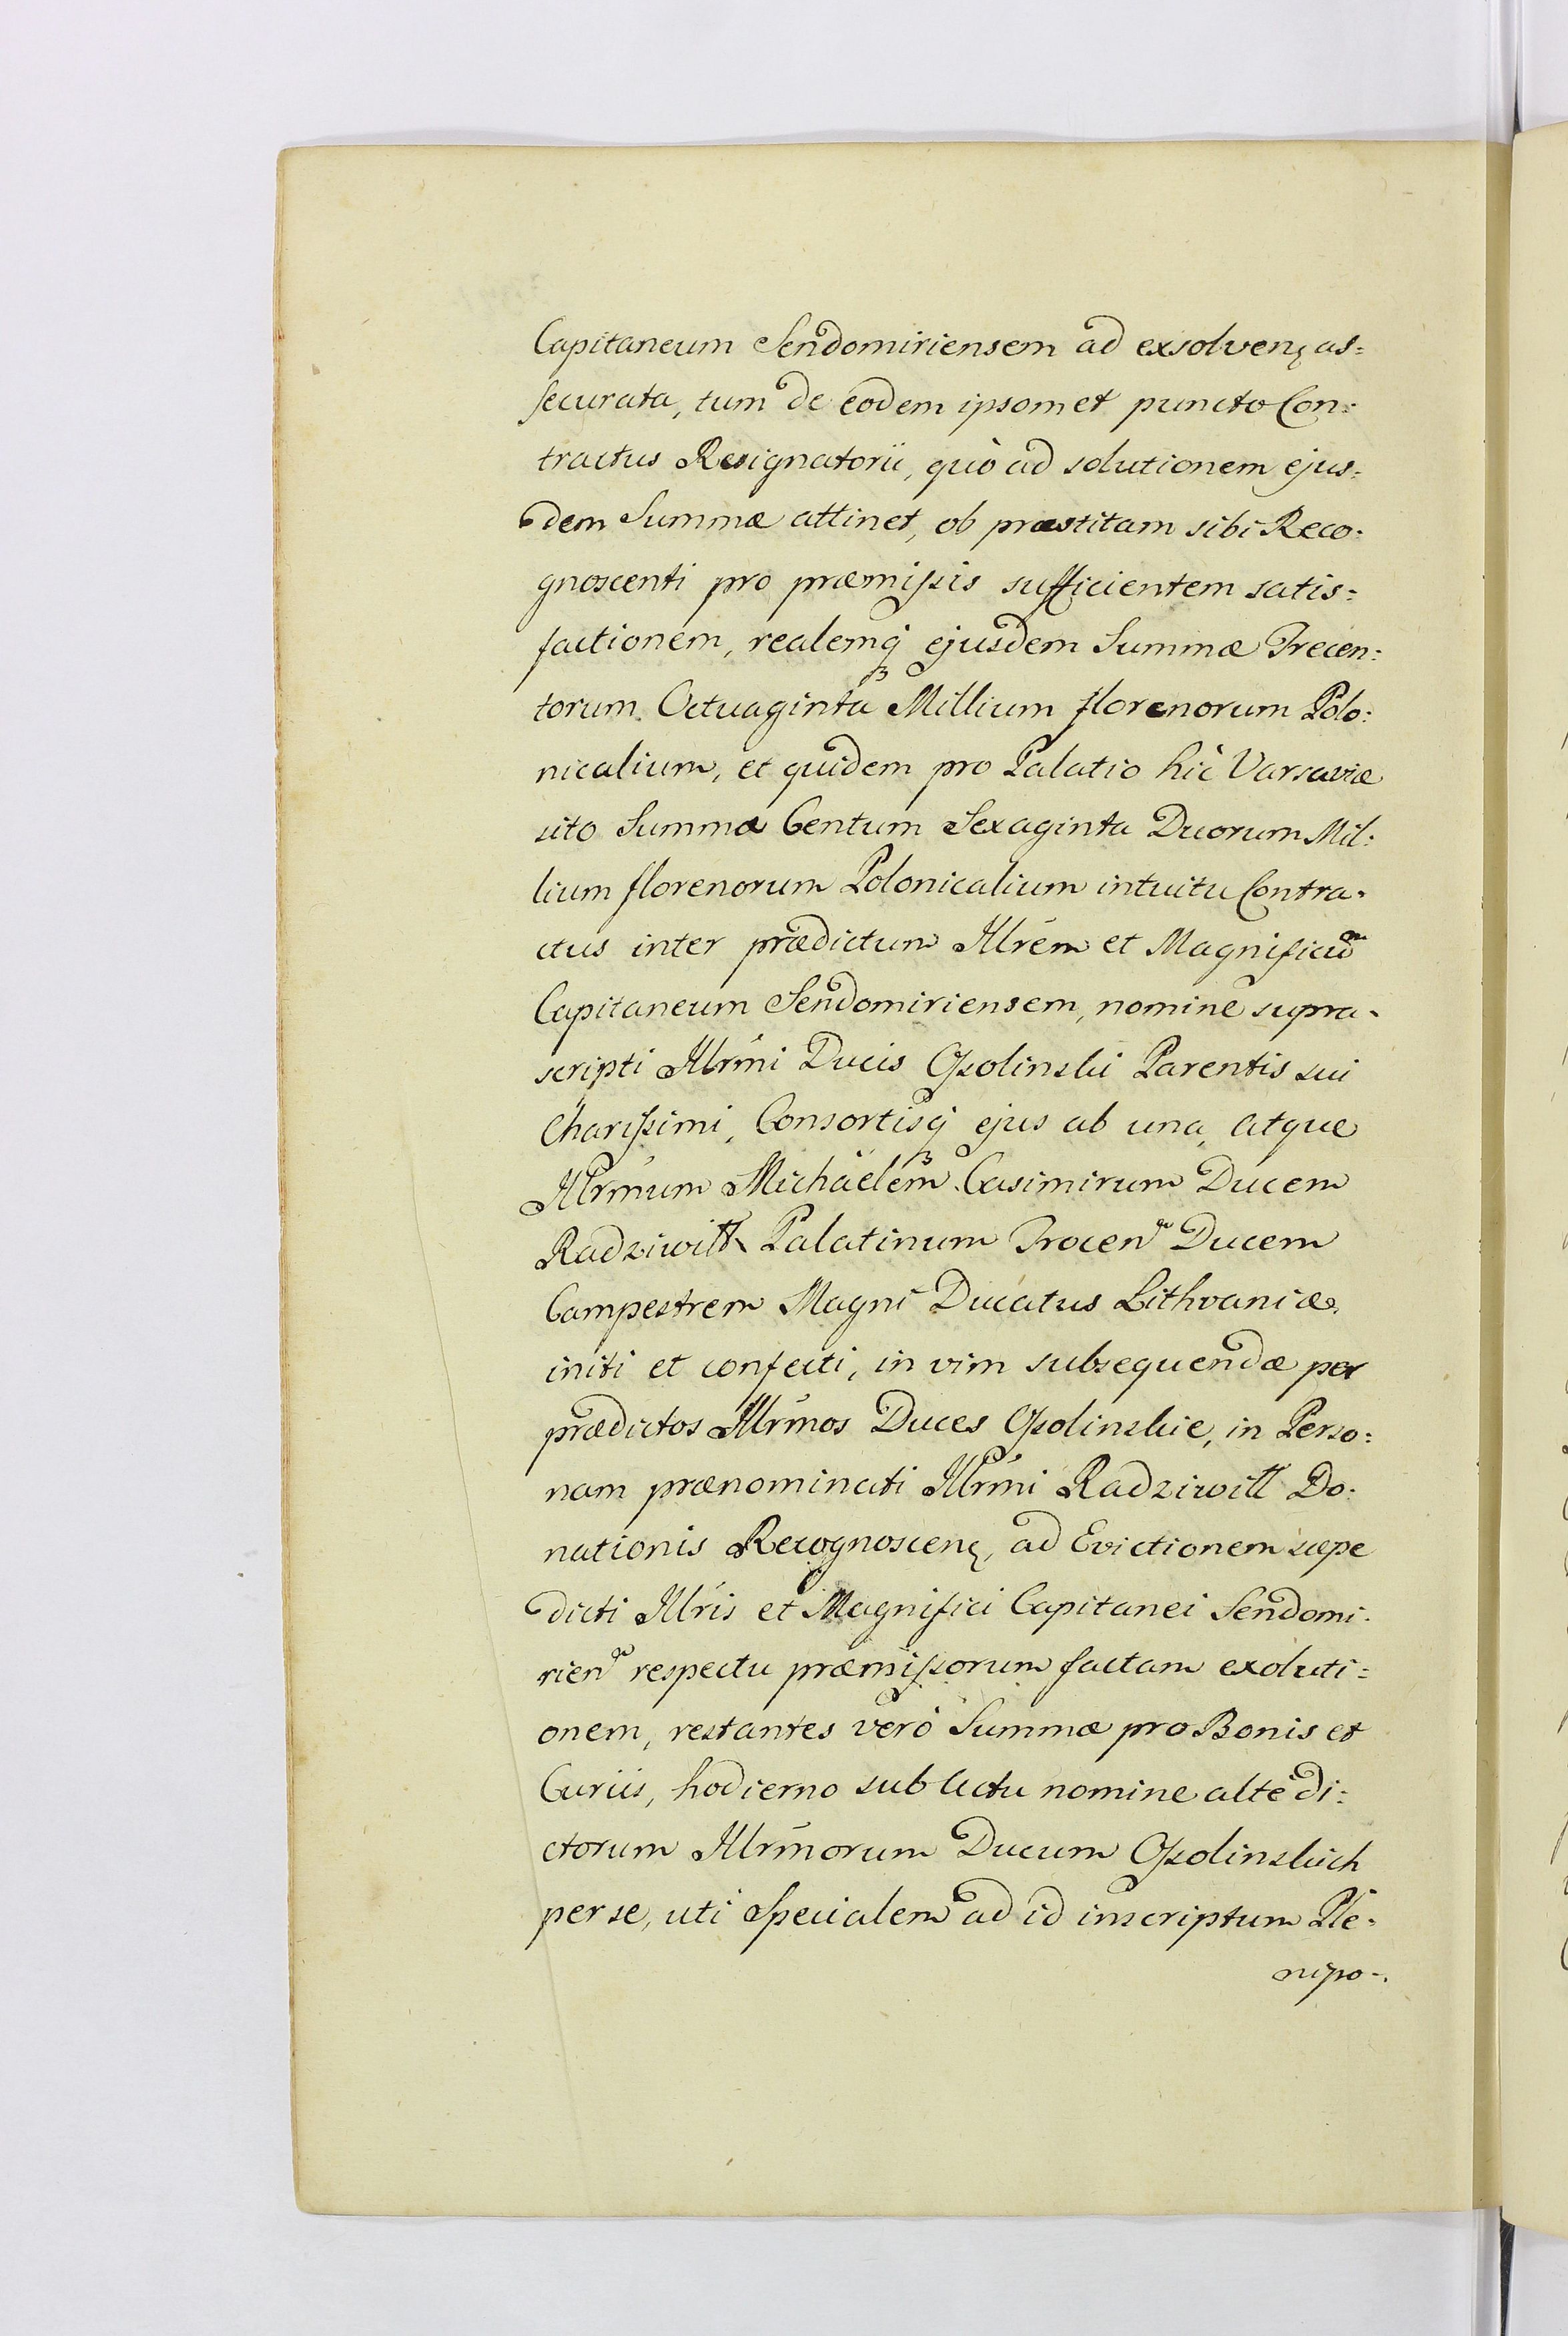 Capitaneum Sendomiriensem ad exsolven: as=
securata, tum de eodem ipsomet puncto Con=
tractus Resignatorii, quò ad solutionem ejus=
dem Summæ attinet, ob præstitam sibi Reco=
gnoscenti pro præmissis sufficientem satis=
factionem, realemq3 ejusdem Summæ Trecen=
torum Octuaginta Millium florenorum Polo=
nicalium, et quidem pro Palatio hic Varsaviæ
sito Summa Centum Sexaginta Duorum Mil=
lium florenorum Polonicalium intuitu Contra=
ctus inter prædictum Illrem et Magnificum
Capitaneum Sendomiriensem, nomine supra=
scripti Illrmi Ducis Ossolinski Parentis sui
Charissimi, Consortisq3 ejus ab una, atque
Illrmum Michaëlem Casimirum Ducem
Radziwiłł Palatinum Trocen̄ Ducem
Campestrem Magni Ducatus Lithvaniæ,
initi et confecti, in vim subsequendæ per
prædictos Illrmos Duces Ossolinskie, in Perso=
nam prænominati Illrmi Radziwiłł Do=
nationis Recognoscen:, ad Evictionem sæpe
dicti Illris et Magnifici Capitanei Sendomi=
rien̄ respectu præmissorum factam exoluti=
onem, restantes verò Summæ pro Bonis et
Curiis, hodierno sub Actu nomine altè di=
ctorum Illrmorum Ducum Ossolinskich
per se, uti Specialem ad id inscriptum Ple=
nipo-.